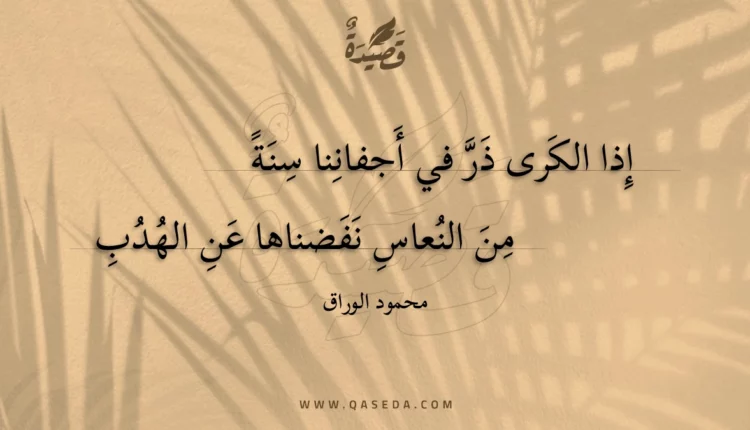 قَصِيدَةٌ
إِذا الكَرى ذَرَّ في أَجفانِنا سِنَةً
مِنَ النُعاسِ نَفَضناها عَنِ الهُدُبِ
محمود الوراق
WWW.QASEDA.COM